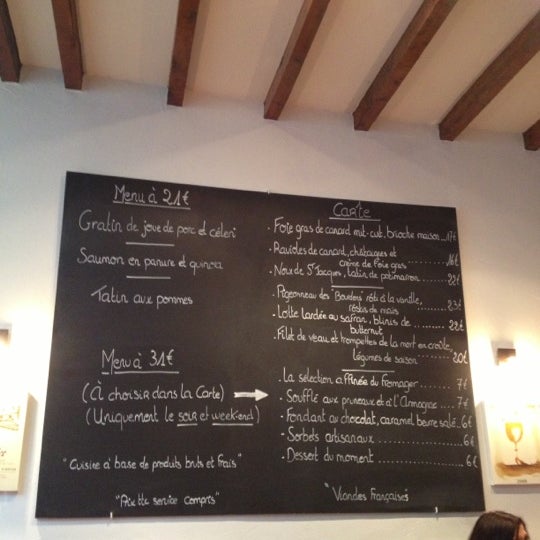 Menu à 21€
Gratin de joue de porc et céleri
Saumon en panure et quinoa
Tatin aux pommes
Menu à 31€
(À choisir dans la Carte)
(Uniquement le soir et week-end)
"Cuisine à base de produits bruts et frais"
"Prix ttc service compris"
Carte
. Foie gras de canard mi-cuit, brioche maison ..17€
. Ravioles de canard, châtaignes et
crème de foie gras ....... 16€
. Noix de St Jacques, tatin de potimarron..... 22€
. Pigeonneau des Boudoirs rôti à la vanille,
röstis de maïs ........ 23€
. Lotte lardée au safran, blinis de
butternut ........ 22€
. Filet de veau et trompettes de la mort en croûte,
Légumes de saison ........ 20€
. La sélection affinée du fromager....... 7€
. Soufflé aux pruneaux et à l'Armagnac.... 7€
. Fondant au chocolat, caramel beurre salé..6€
. Sorbets artisanaux ........... 6€
. Dessert du moment ........... 6€
"Viandes Françaises"